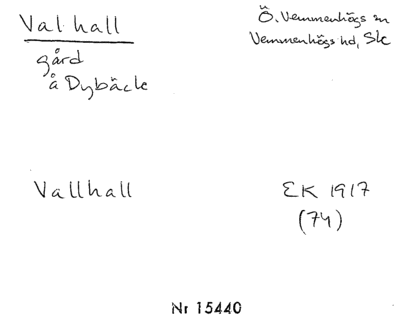 Valhall
gård
å Dybäck
Ö. Vemmenhögs sn
Vemmenhögs hd, Sk
Vallhall
EK 1917
(74)
Nr 15440